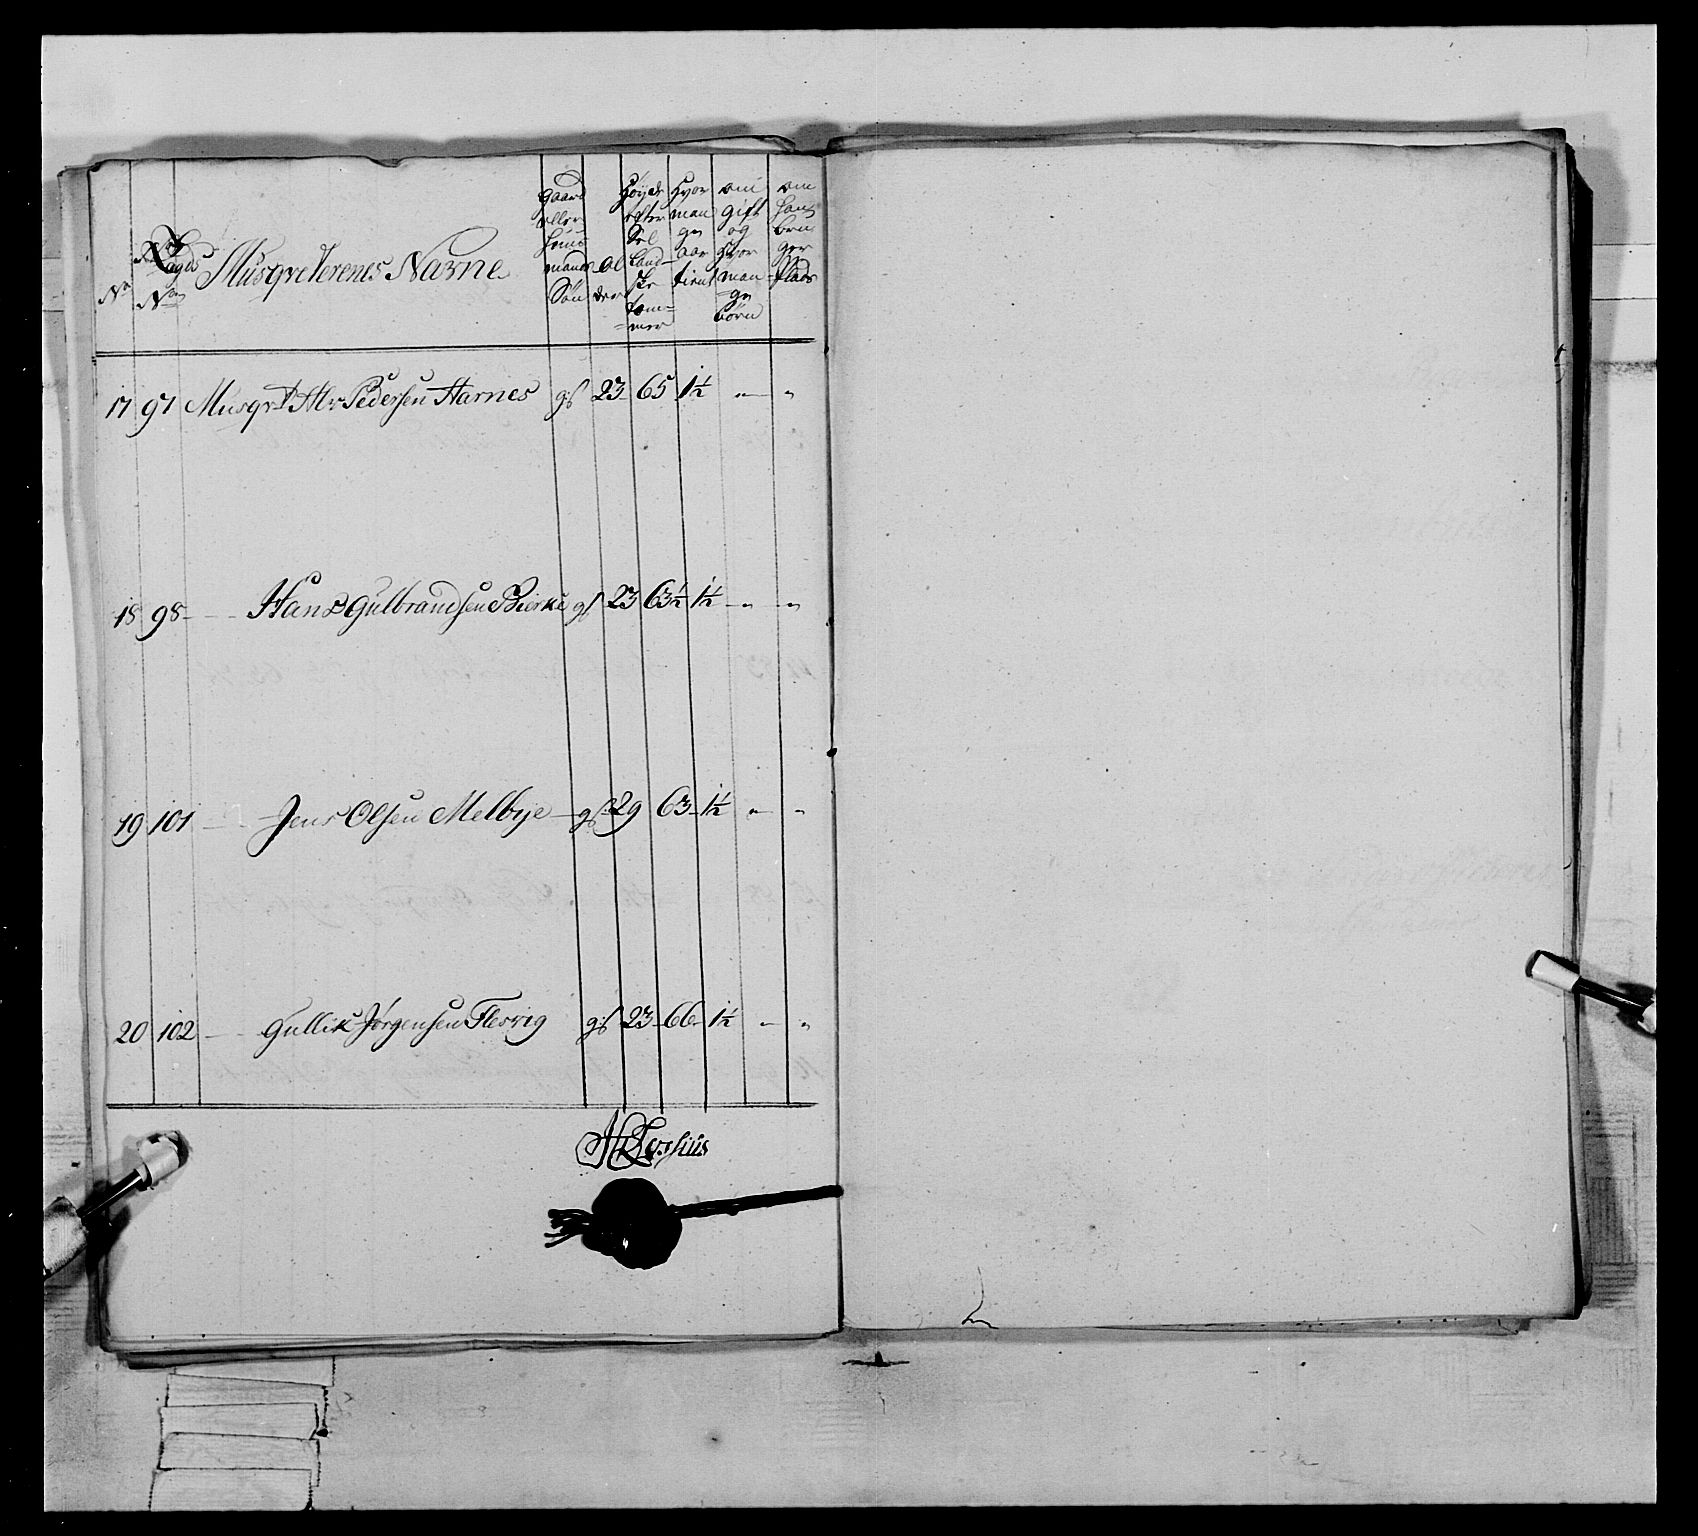 No
Lægds No
Musqveterenes Nafne
Gaard eller Huusmands Søn
Alder
Høyde efter Sellandske Tommer
Hvor mange aar tient
om gift og Hvor mange Børn
om Han bruger Plads
17 97 Musqrt Pedersen Harnes gs 23 65 1½ " "
18 98 Hans Gulbrandsen Bierke gs 23 63½ 1½ " "
19 101 Jens Olsen Melbye gs 29 63 1½ " "
20 102 Gullik Jørgensen Flesvig gs 23 66 1½ " "